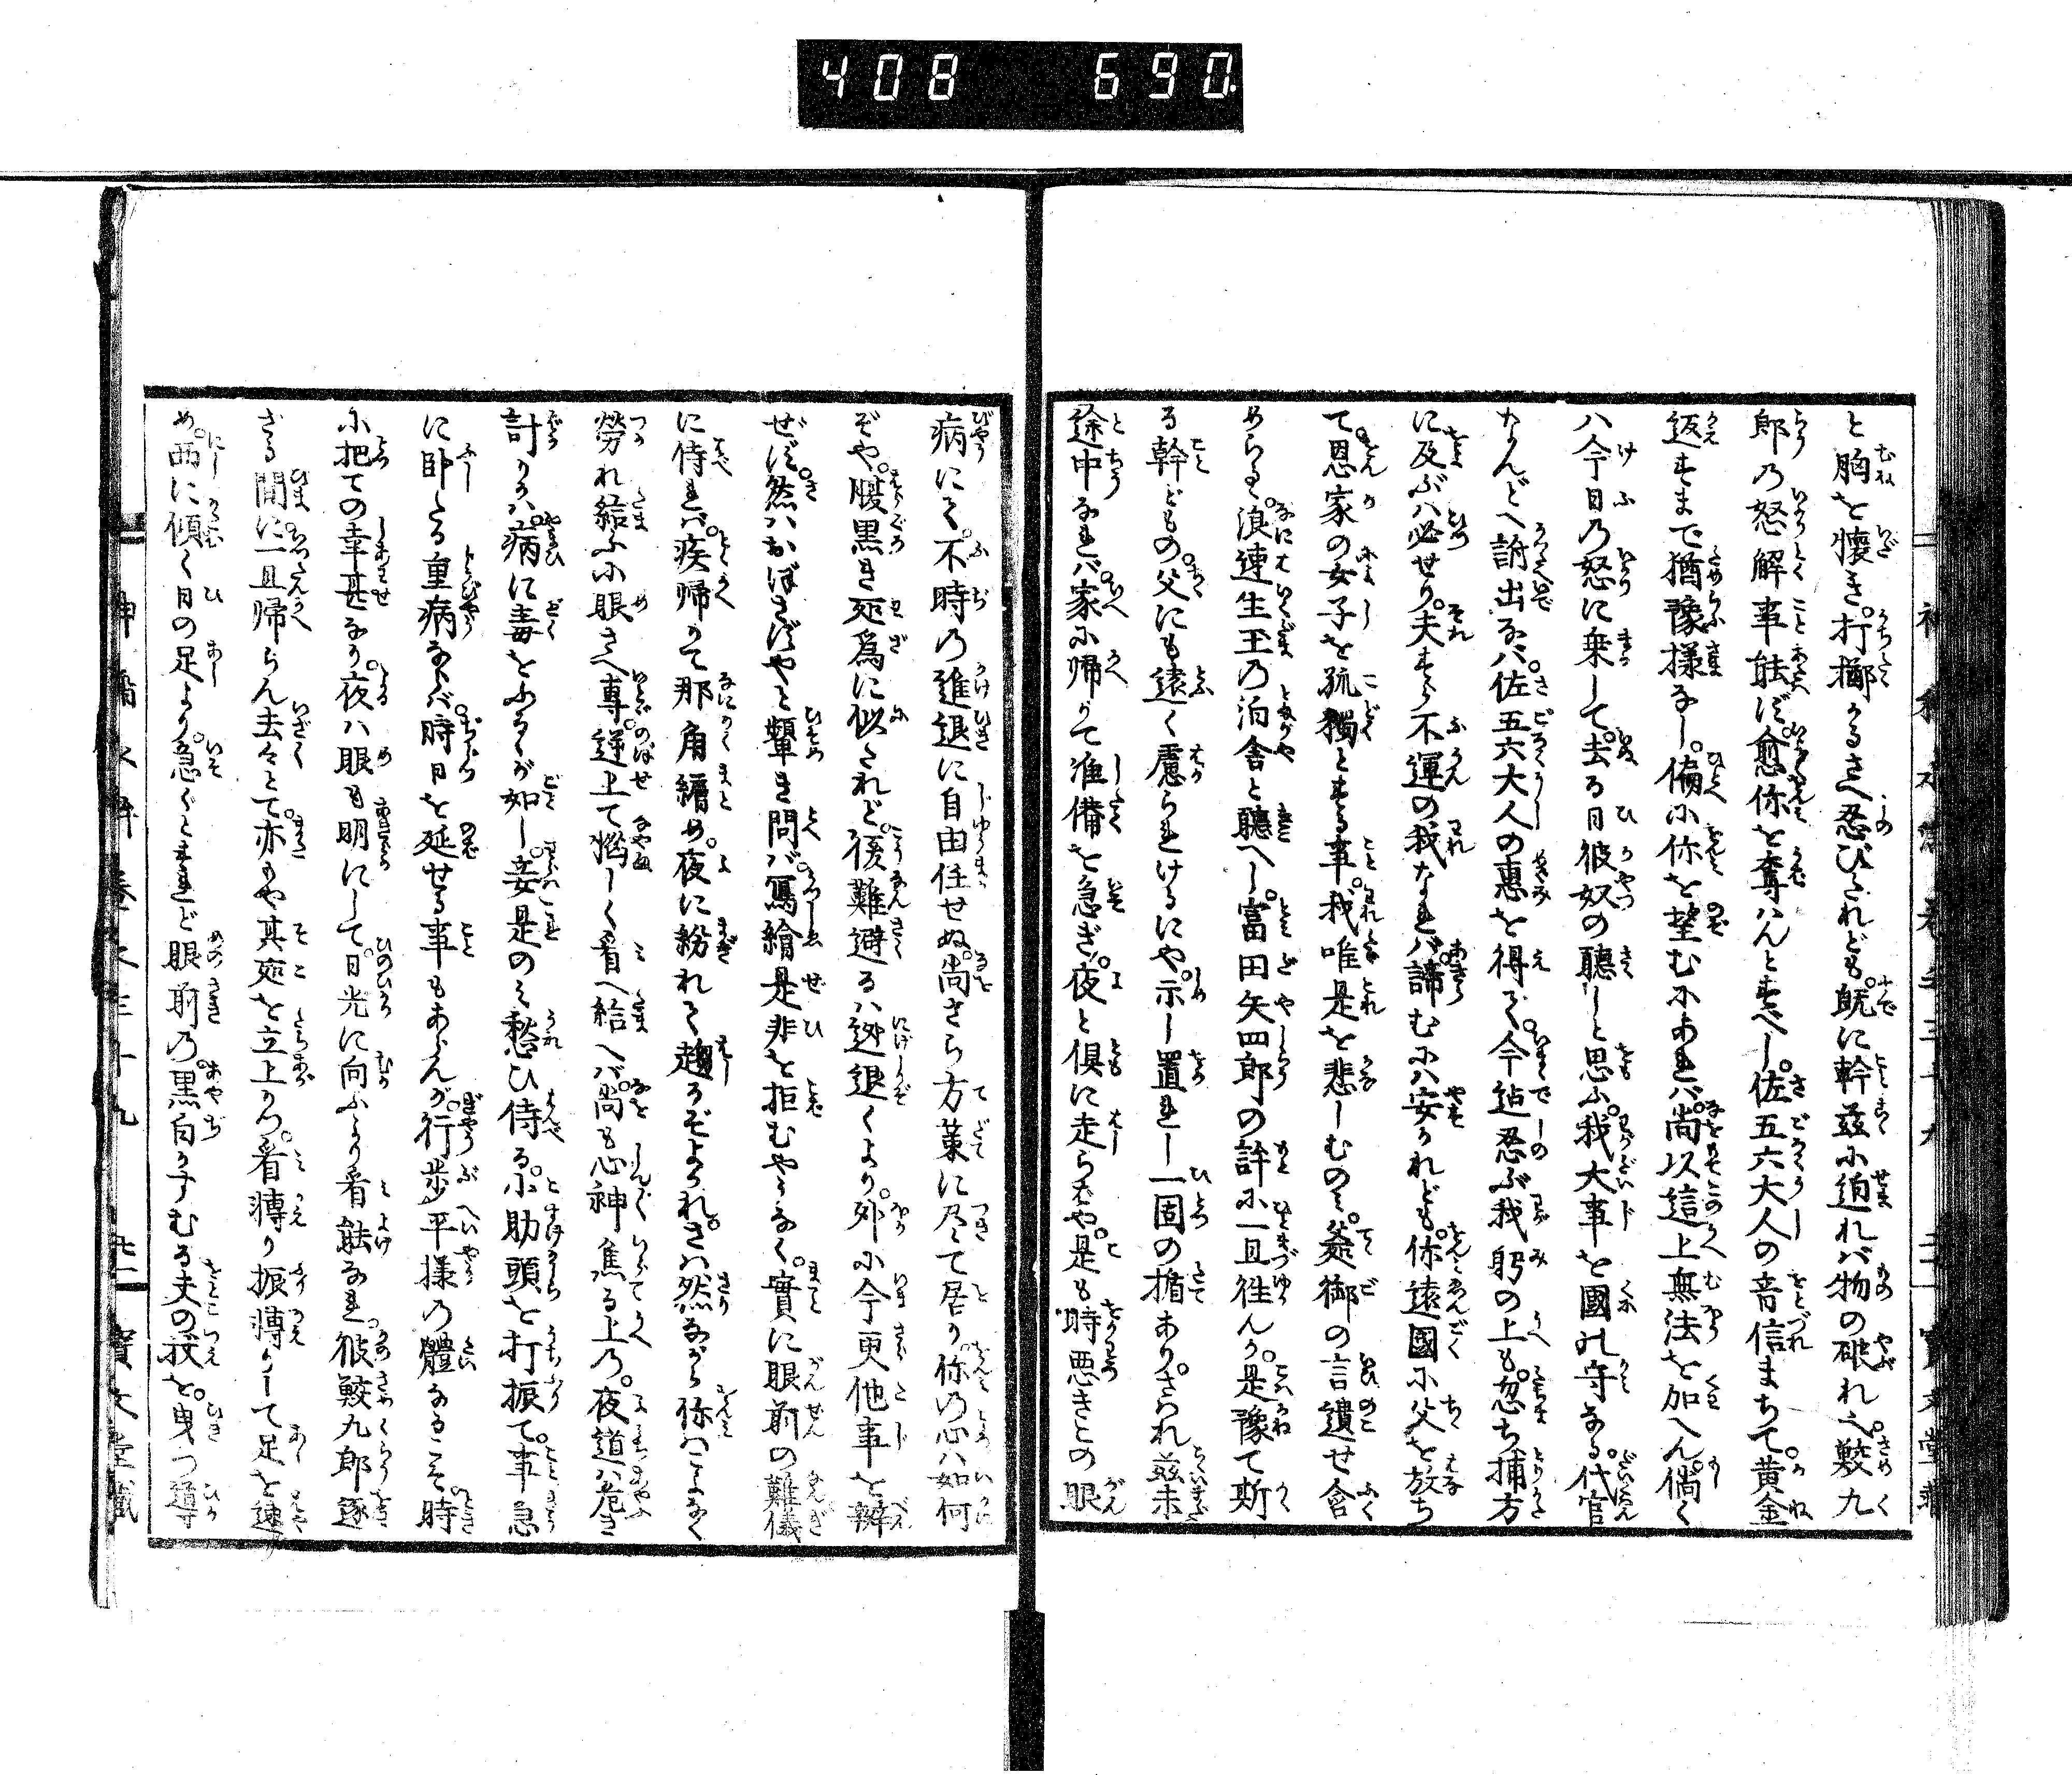 408 690
と胸を懐き。打擲かるさへ忍びされども。既に幹茲に迫れバ物の破れへ。鮫九
郎の怒解事能ず。愈你を奪ハんとすべし。佐五六大人の音信まちて。黄金
返すまで猶豫様なし。偏に你を望むにあれバ。尚以這上無法を加へん。倘く
ハ今日の怒に乗して。去る日彼奴の聽しと思ふ。我大事を國の守なる。代官
なんどへ訴出なバ。佐五六大人の惠を得で。今迠忍ぶ我躬の上も。忽ち捕方
に及ぶハ必せり。夫すら不運の我なれバ。諦むにハ安かれども。你遠國に父を放ち
て。恩家の女子を孤獨とする事。我唯是を悲しむのミ。爺御の言遺せ含
めらる。浪速生玉の泊舎と聽へし。富田矢四郎の許に一旦徃んか。是豫て斯
る幹どもの。父にも遠く慮られけるにや。示し置れし一固の楯あり。さられ茲未
途中なれバ。家に帰りて准備を急ぎ。夜と俱に走らばや。是も時悪きとの眼
病にて。不時の進退に自由任せぬ。尚さら方策に尽て居り。你の心ハ如何
ぞや。腹黒き㢟為に似たれど。後難避るハ迯退くより。外に今更他事を辨
ぜず。然ハおぼさずやと顰き問バ。寫繪是非を拒むやうなく。實に眼前の難儀
に侍れバ。疾帰りて那角纏め。夜に紛れて趨るぞよかれ。さハ然ながら你はこよなく
勞れ給ふに眼さへ専。逆上て惱しく看へ給へバ。尚も心神焦る上の。夜道ハ危き
計りかハ。病に毒をふるふが如し。妾是のミ愁ひ侍る。ふ助頭を打振て。事急
に臥たる重病ならバ。時日を延せる事もあらんが。行歩平様の體なるこそ。時
に把ての幸甚なり。夜ハ眼も明にして。日光に向ふより看能なれ。彼鮫九郎逐
ざる間に。一旦帰らん去々とて。亦もや其㢟を立上りつ。看轉り振轉りして足を速
め。西に傾く日の足より。急ぐとすれど眼前の。黒白かすむる夫の杖を。曳つ導
寳文堂藏